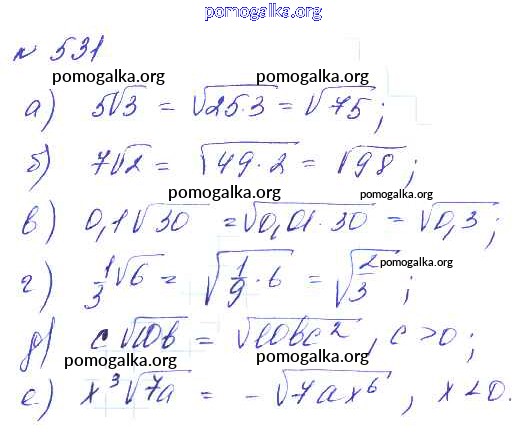 pomogalka.org
№ 531
pomogalka.org
pomogalka.org
а) 5√3 = √25·3 = √75;
pomogalka.org
б) 7√2 = √49·2 = √98;
pomogalka.org
pomogalka.org
в) 0,1√30 = √0,01·30 = √0,3;
г) 1/3√6 = √1/9·6 = √2/3;
pomogalka.org
д) c√10b = √10bc², c>0;
pomogalka.org
pomogalka.org
е) x³√7a = -√7ax⁶, x<0.